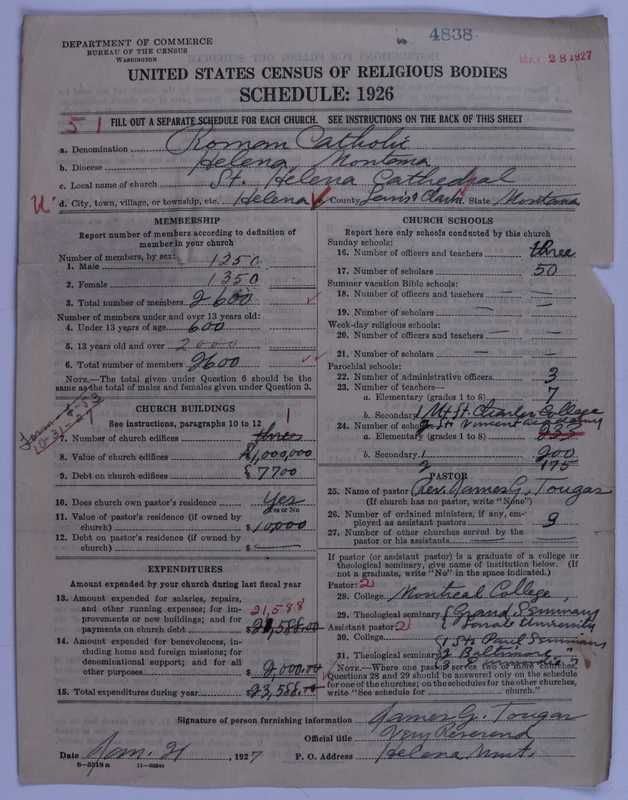 4838
MAY 28 1927
DEPARTMENT OF COMMERCE
BUREAU OF THE CENSUS
WASHINGTON
UNITED STATES CENSUS OF RELIGIOUS BODIES
SCHEDULE: 1926
51 FILL OUT A SEPARATE SCHEDULE FOR EACH CHURCH. SEE INSTRUCTIONS ON THE BACK OF THIS SHEET
a. Denomination Roman Catholic
b. Diocese Helena, Montana
c. Local name of church St. Helena Cathedral
d. City, town, village, or township, etc. Helena County Lewis & Clark State Montana
MEMBERSHIP
Report number of members according to definition of
member in your church
Number of members, by sex:
1. Male 1250
2. Female 1350
3. Total number of members 2600
Number of members under and over 13 years old:
4. Under 13 years of age 600
5. 13 years old and over 2000
6. Total number of members 2600
NOTE.—The total given under Question 6 should be the
same as the total of males and females given under Question 3.
10-31-27
CHURCH BUILDINGS
See instructions, paragraphs 10 to 12
1
7. Number of church edifices three
8. Value of church edifices $1,000,000
9. Debt on church edifices $7700
10. Does church own pastor's residence? Yes
Yes or No
11. Value of pastor's residence (if owned by
church) $10,000
12. Debt on pastor's residence (if owned by
church) $ —
EXPENDITURES
Amount expended by your church during last fiscal year
13. Amount expended for salaries, repairs,
and other running expenses; for im-
provements or new buildings; and for
payments on church debt $21,588.00
21,588
14. Amount expended for benevolences, in-
cluding home and foreign missions; for
denominational support; and for all
other purposes $2,000.00
15. Total expenditures during year $23,588.00
CHURCH SCHOOLS
Report here only schools conducted by this church
Sunday schools:
16. Number of officers and teachers three
17. Number of scholars 50
Summer vacation Bible schools:
18. Number of officers and teachers —
19. Number of scholars —
Week-day religious schools:
20. Number of officers and teachers —
21. Number of scholars —
Parochial schools:
22. Number of administrative officers 3
23. Number of teachers—
a. Elementary (grades 1 to 8) 7
b. Secondary 1 Mt St. Charles College
24. Number of scholars— 2 St Vincent Academy
a. Elementary (grades 1 to 8) 222
b. Secondary 1 200
2 175
PASTOR
25. Name of pastor Rev. James G. Tougas
(If church has no pastor, write "None")
26. Number of ordained ministers, if any, em-
ployed as assistant pastors 9
27. Number of other churches served by the
pastor or his assistants —
If pastor (or assistant pastor) is a graduate of a college or
theological seminary, give name of institution below. (If
not a graduate, write "No" in the space indicated.)
Pastor: 2
28. College Montreal College,
29. Theological seminary Grand Seminary
Laval University
Assistant pastor: 2
30. College
31. Theological seminary 1 St. Paul Seminary
2 Baltimore "
NOTE.—Where one pastor serves two or more churches,
Questions 28 and 29 should be answered only on the schedule
for one of the churches; on the schedules for the other churches,
write "See schedule for church."
Signature of person furnishing information James G. Tougas
Official title Very Reverend
Date Jan. 21, 1927 P. O. Address Helena Mont.
8—5519a 11—9554c